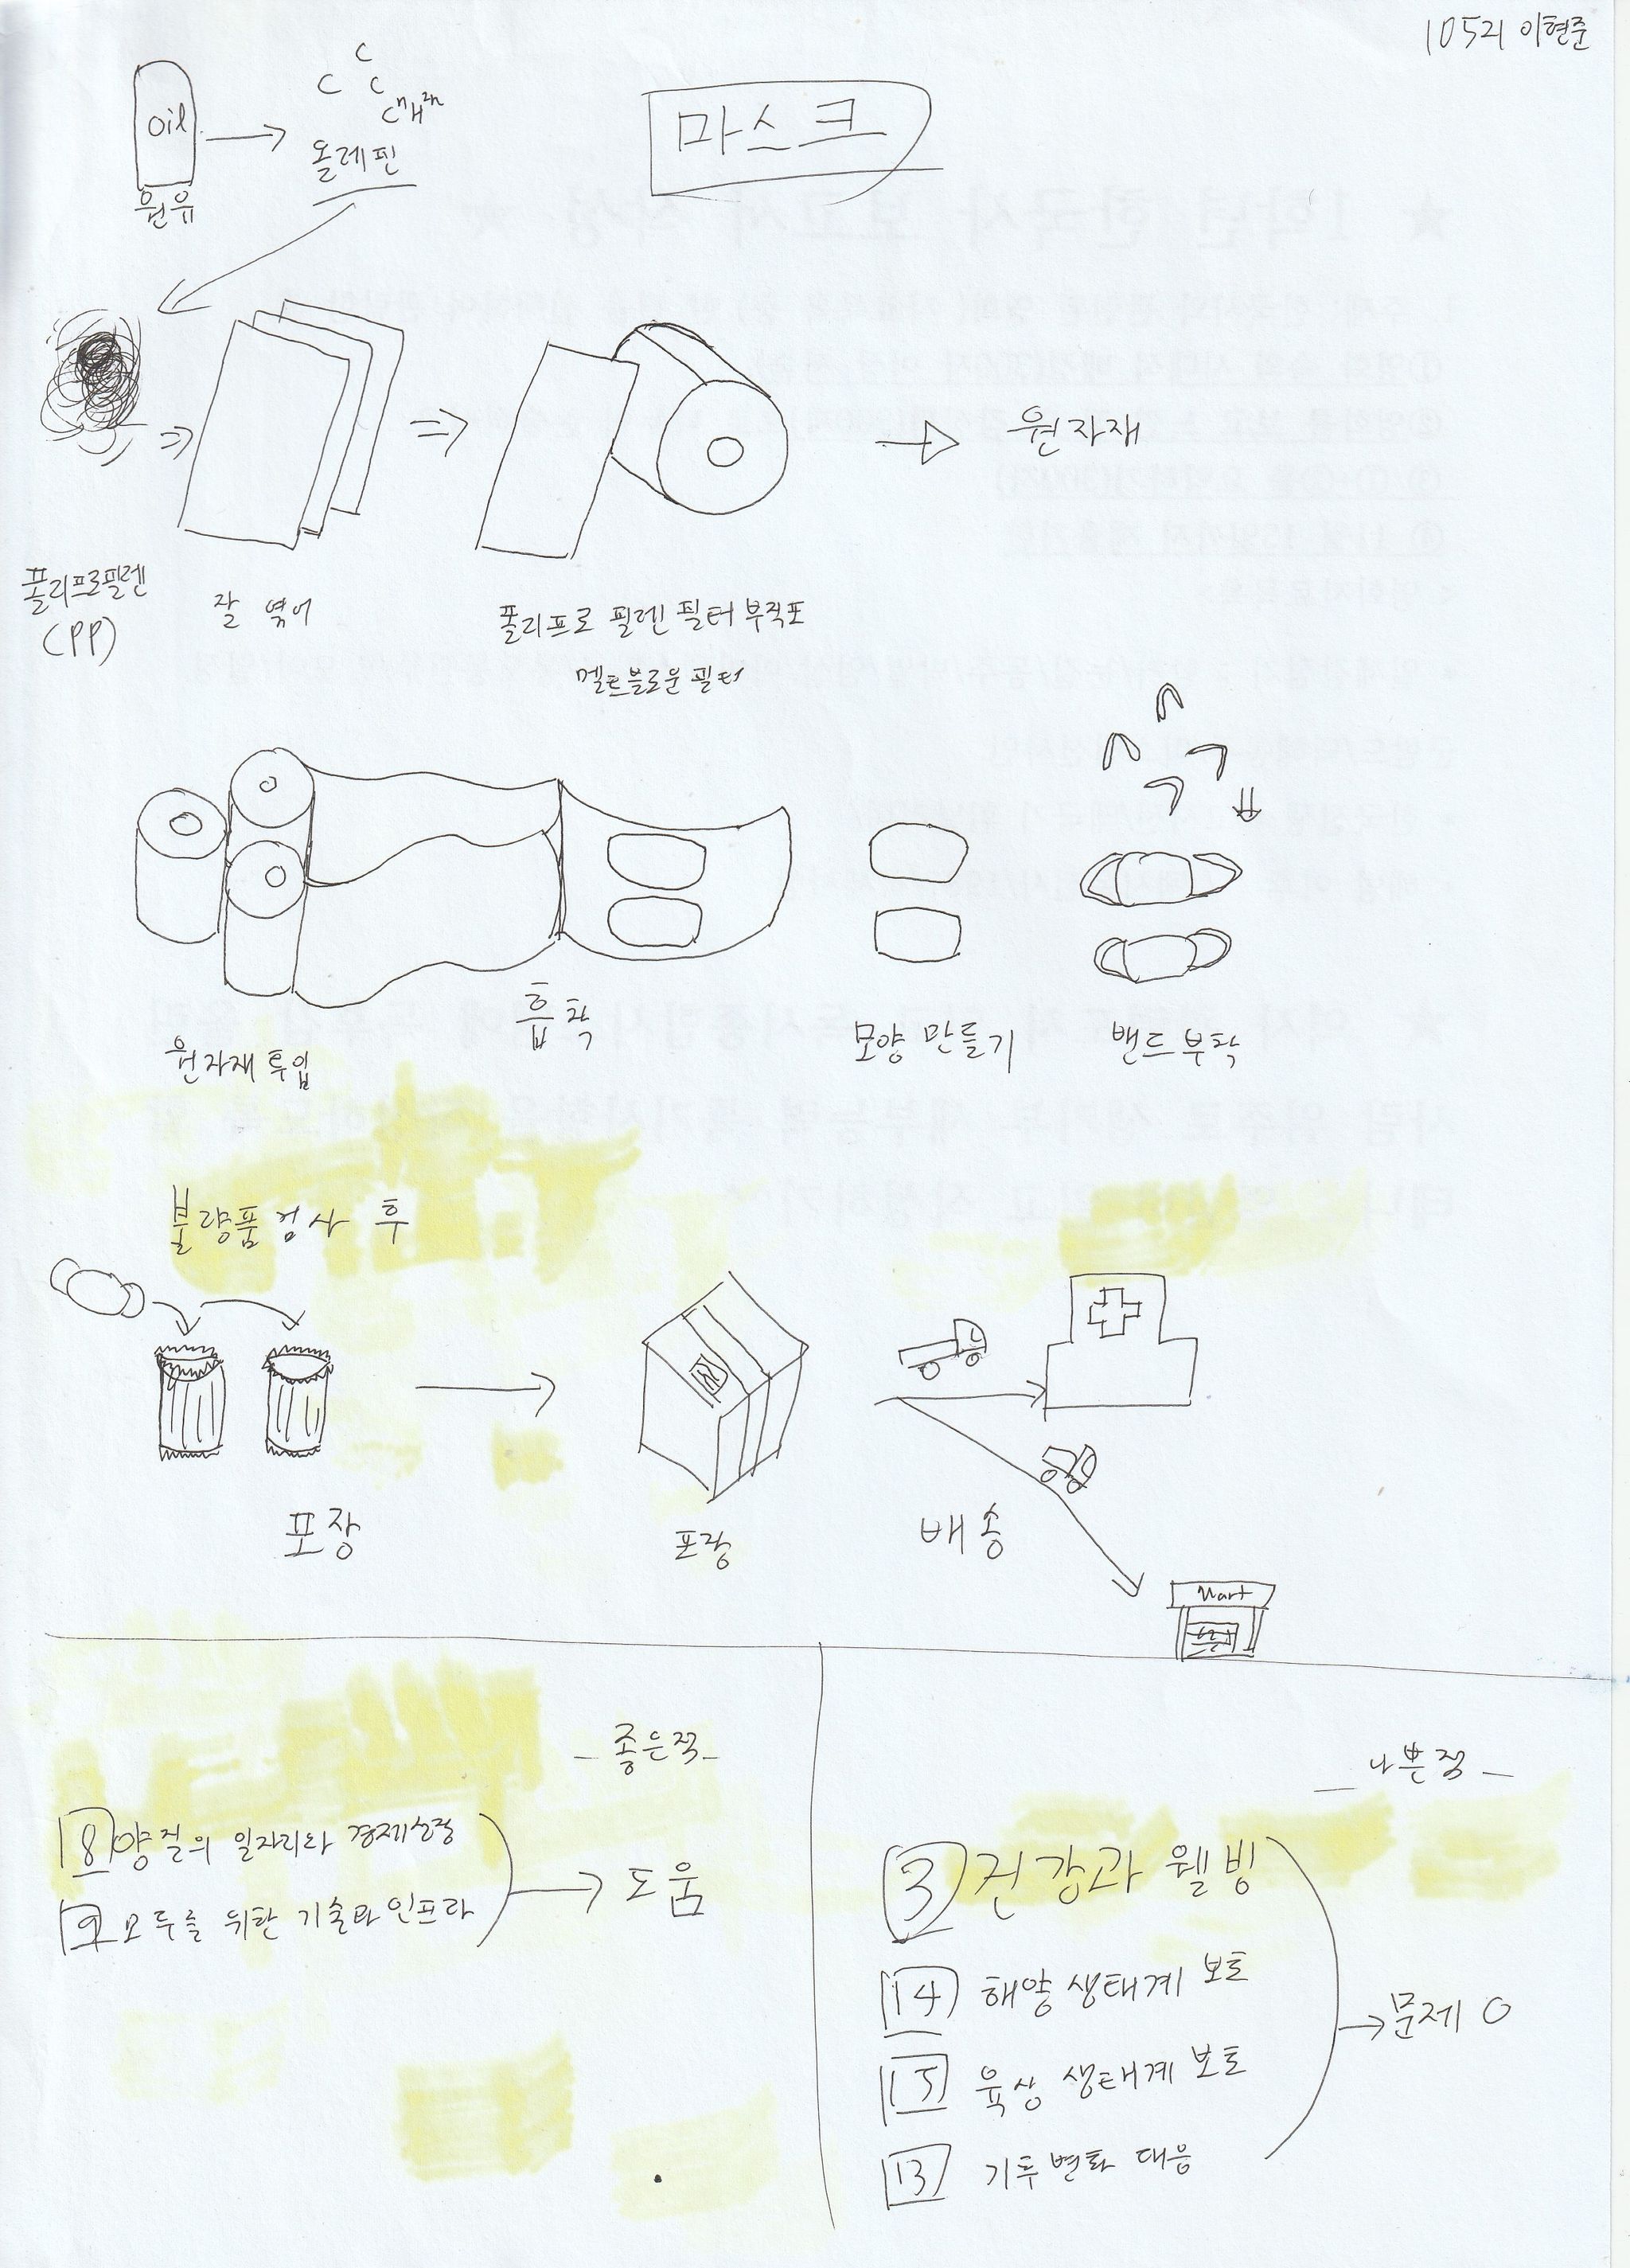 10521 이현준
oil
C C C CnH2n
원유
올레핀
마스크
원자재
폴리프로필렌
(PP)
잘 엮어
폴리프로필렌 필터 부직포
멜트블로운 필터
원자재 투입
흡착
모양 만들기
밴드부착
불량품검사 후
포장
포장
배송
Mart
좋은점
8 양질의 일자리와 경제성장
9 모두를 위한 기술과 인프라
도움
나쁜점
3 건강과 웰빙
14 해양 생태계 보호
15 육상 생태계 보호
13 기후변화 대응
문제 O